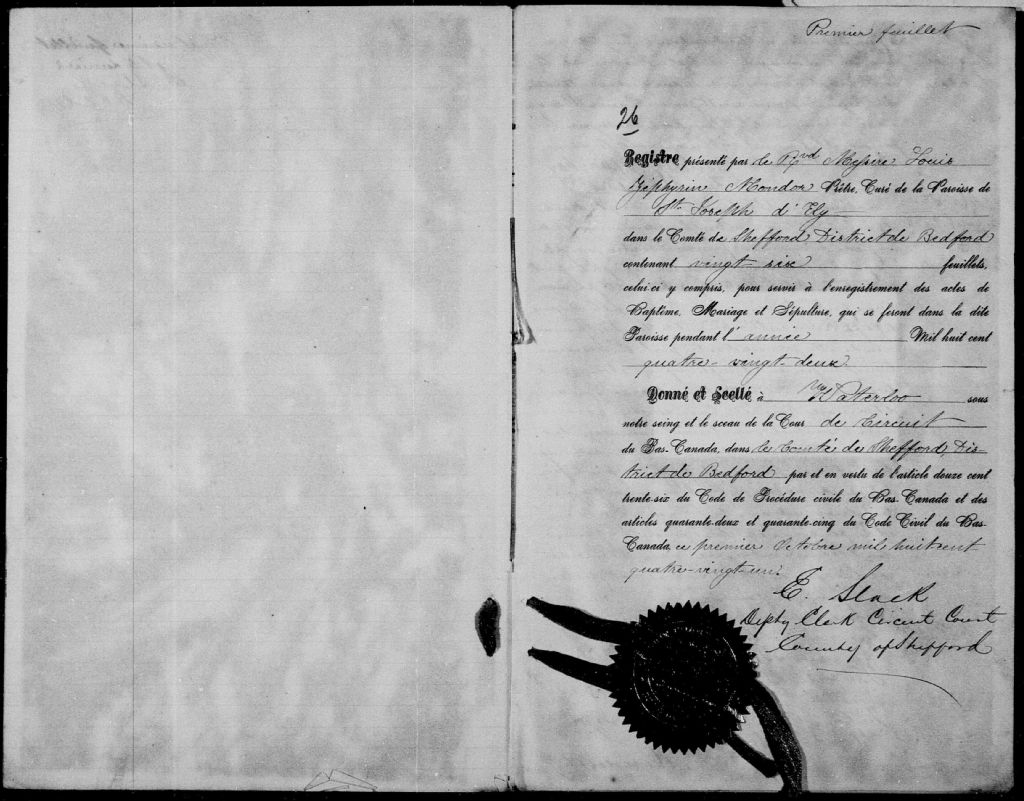 Premier feuillet
26
Registre présenté par le Rvd Messire Louis
Zéphyrin Mondor Prêtre, Curé de la Paroisse de
St. Joseph d'Ely
dans le Comté de Shefford District de Bedford
contenant vingt-six feuillets,
celui-ci y compris, pour servir à l'enregistrement des actes de
Baptême, Mariage et Sépulture, qui se feront dans la dite
Paroisse pendant l'année Mil huit cent
quatre-vingt-deux.
Donné et Scellé à Waterloo sous
notre seing et le sceau de la Cour de Circuit
du Bas-Canada, dans le Comté de Shefford, Dis-
trict de Bedford par et en vertu de l'article douze cent
trente-six du Code de Procédure civile du Bas-Canada et des
articles quarante-deux et quarante-cinq du Code Civil du Bas-
Canada, ce premier Octobre mil huit cent
quatre-vingt-un.
E. Slack
Depty Clerk Circuit Court
County of Shefford